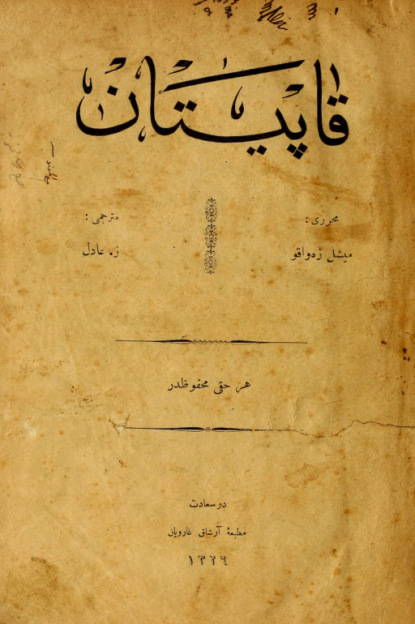 قاپیتان
محرری :
میشل زه‌واقو
مترجمی :
زه عادل
هر حقی محفوظدر
درسعادت
مطبعهٔ آرشاق غارویان
١٣٢٦